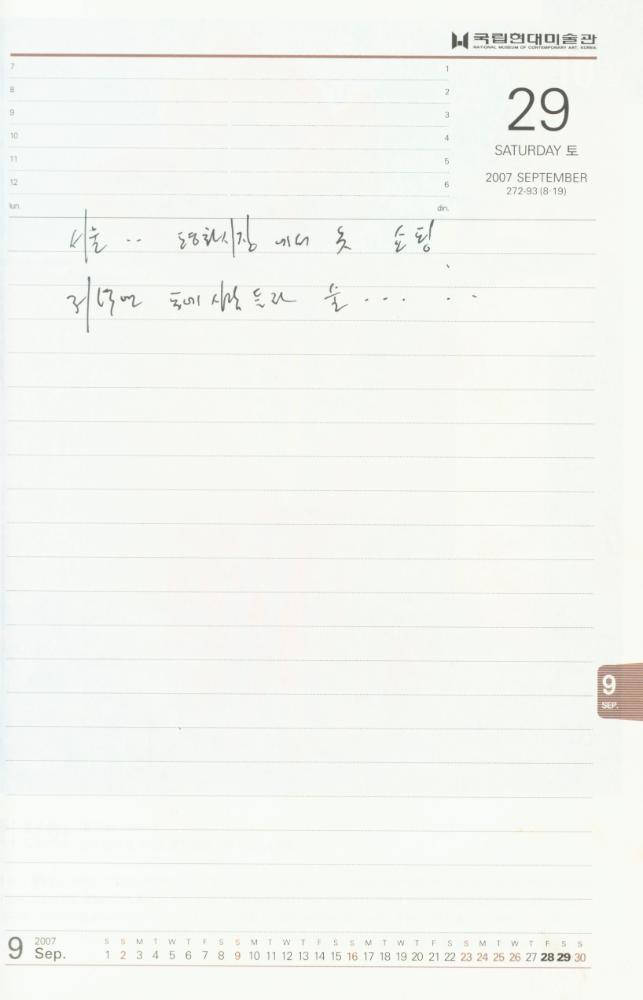 국립현대미술관
NATIONAL MUSEUM OF CONTEMPORARY ART, KOREA
7 1
8 2
9 3
10 4
11 5
12 6
lun. din.
29
SATURDAY 토
2007 SEPTEMBER
272-93 (8·19)
서울 .. 평화시장 에서 옷 쇼핑
술 ... ..
9
SEP.
9 2007 Sep.
S S M T W T F S S M T W T F S S M T W T F S S M T W T F S S
1 2 3 4 5 6 7 8 9 10 11 12 13 14 15 16 17 18 19 20 21 22 23 24 25 26 27 28 29 30